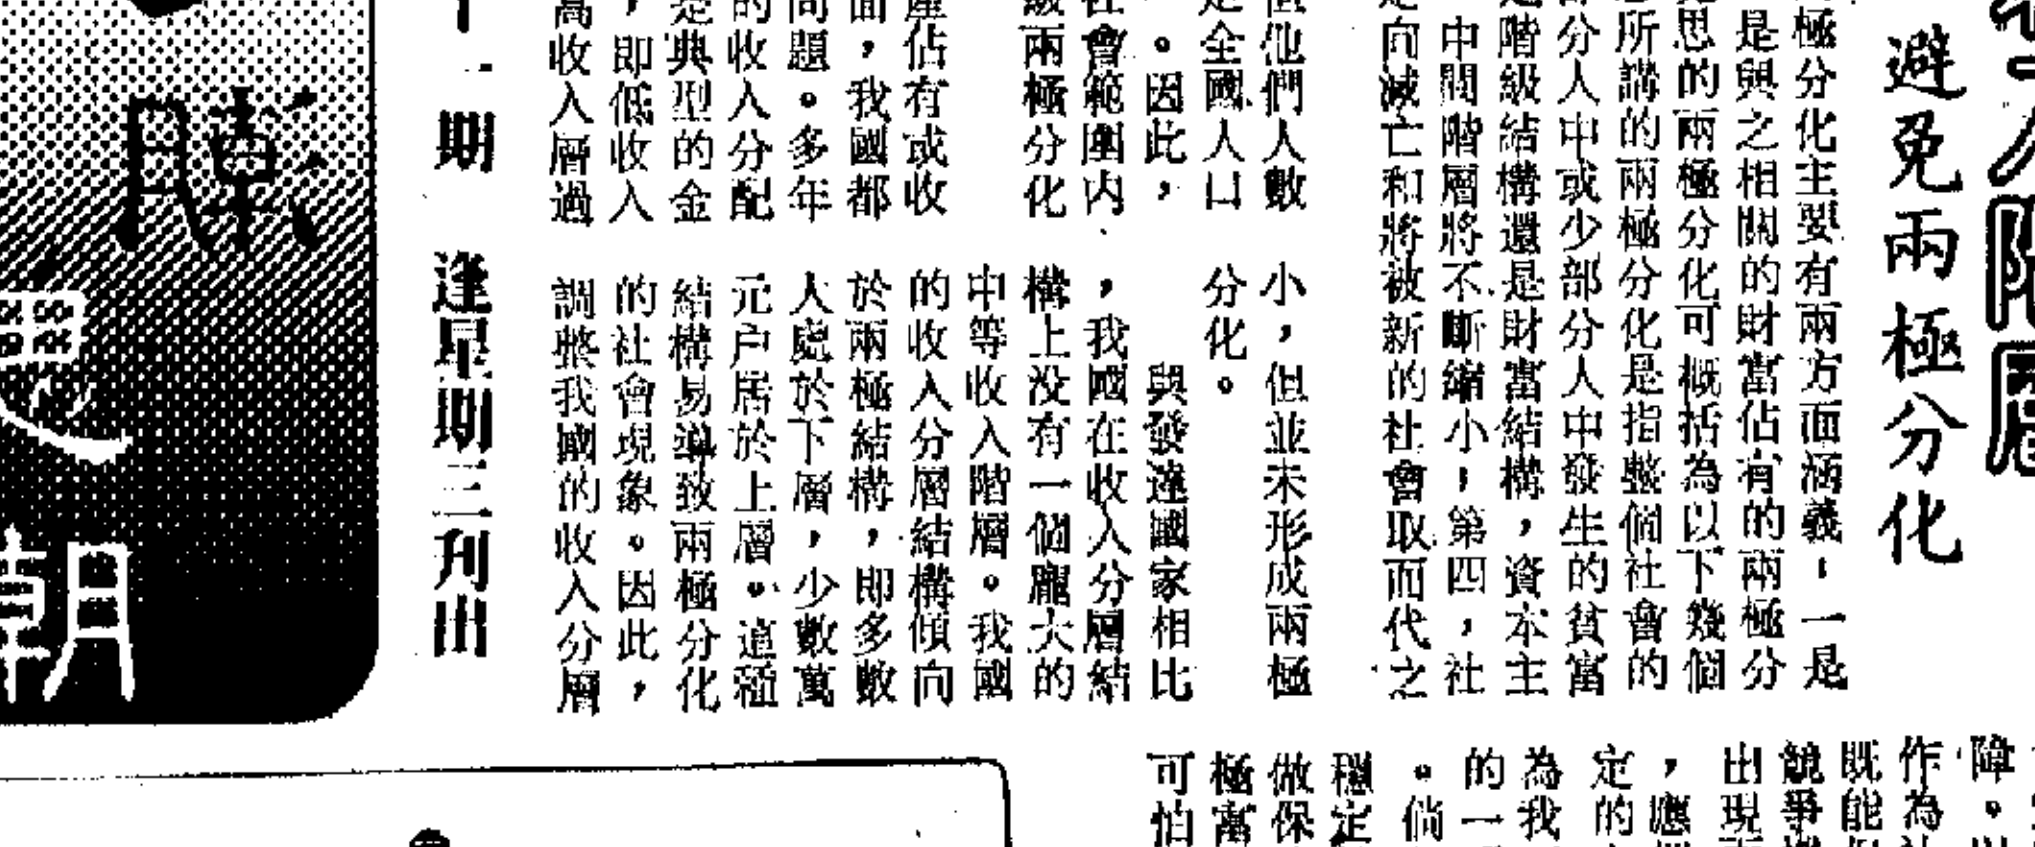 避免兩極分化
極分化主要有兩方面涵義，一是
是與之相關的財富佔有的兩極分
思的兩極分化可概括為以下幾個
所講的兩極分化是指整個社會的
分人中或少部分人中發生的貧富
階級結構還是財富結構，資本主
中間階層將不斷縮小，第四，社
向滅亡和將被新的社會取而代之
他們人數
全國人口
。因此，
會範圍內
兩極分化
小，但並未形成兩極
分化。
與發達國家相比
，我國在收入分層結
構上没有一個龐大的
中等收入階層。我國
的收入分層結構傾向
於兩極結構，即多數
人處於下層，少數萬
元户居於上層。這種
結構易導致兩極分化
的社會現象。因此，
調整我國的收入分層
佔有或收
面，我國都
問題。多年
的收入分配
是典型的金
，即低收入
高收入層過
一期 逢星期三刊出
潮
障。
作為
既能
競爭
出現
，應
定的
為我
的一
。倘
穩定
做保
極富
可怕